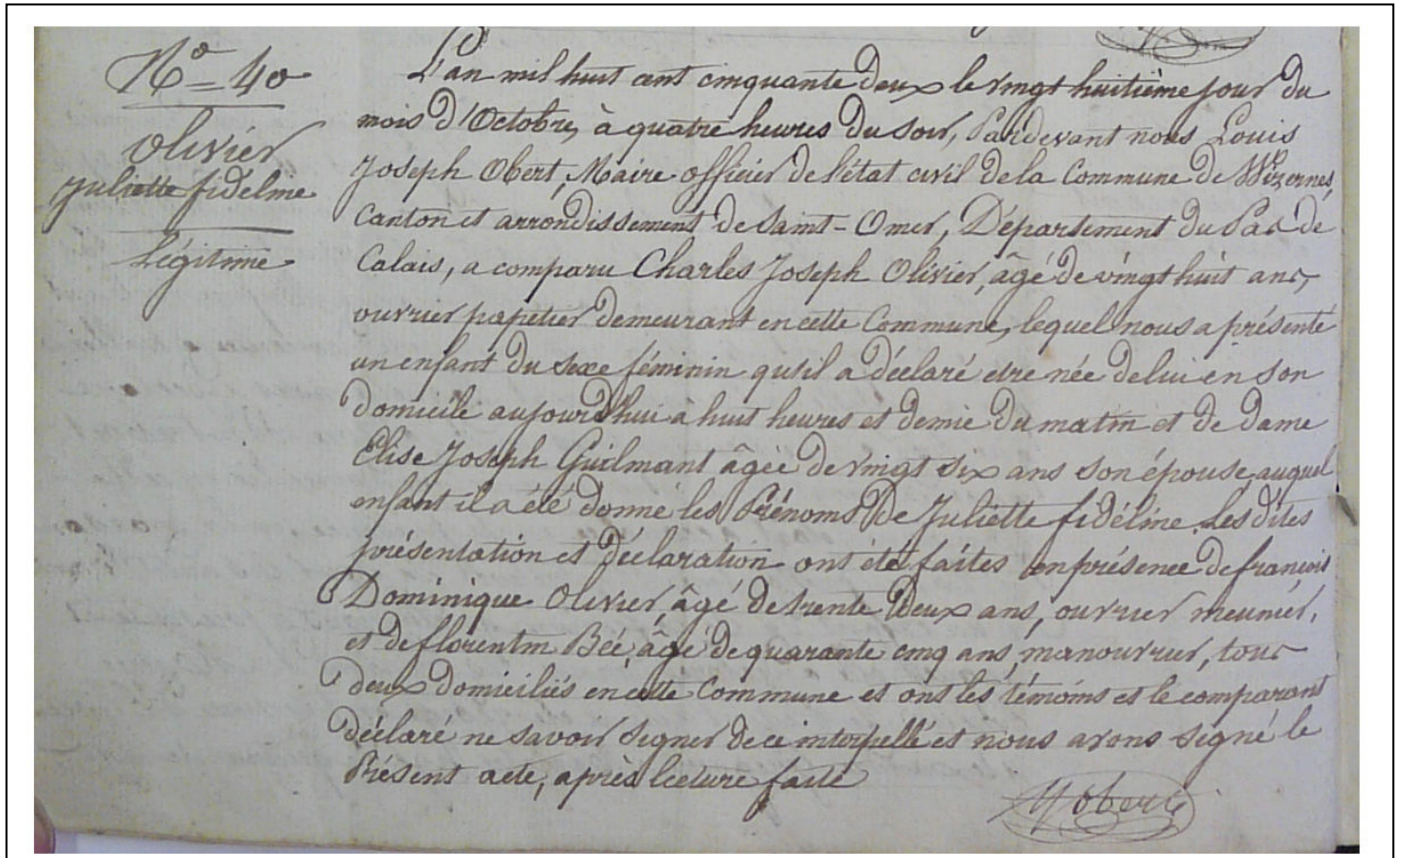 N° = 40
Olivier
Juliette fidéline
Légitime
L'an mil huit cent cinquante deux le vingt huitième jour du
mois d'Octobre, à quatre heures du soir, Pardevant nous Louis
Joseph Obert, Maire officier de l'état civil de la Commune de Wizernes,
Canton et arrondissement de Saint-Omer, Département du Pas de
Calais, a comparu Charles Joseph Olivier, âgé de vingt huit ans,
ouvrier papetier demeurant en cette Commune, lequel nous a présenté
un enfant du sexe féminin qu'il a déclaré être née de lui en son
domicile aujourd'hui a huit heures et demie du matin et de dame
Elise Joseph Guilmant âgée de vingt six ans son épouse, auquel
enfant il a été donné les Prénoms De Juliette fidéline. Les dites
présentation et déclaration ont été faites en présence de françois
Dominique Olivier, âgé de trente deux ans, ouvrier meunier,
et de florentin Bée, âgé de quarante cinq ans, manouvrier, tous
deux domiciliés en cette Commune et ont les témoins et le comparant
déclaré ne savoir signer de ce interpellé et nous avons signé le
Présent acte, après lecture faite
Obert